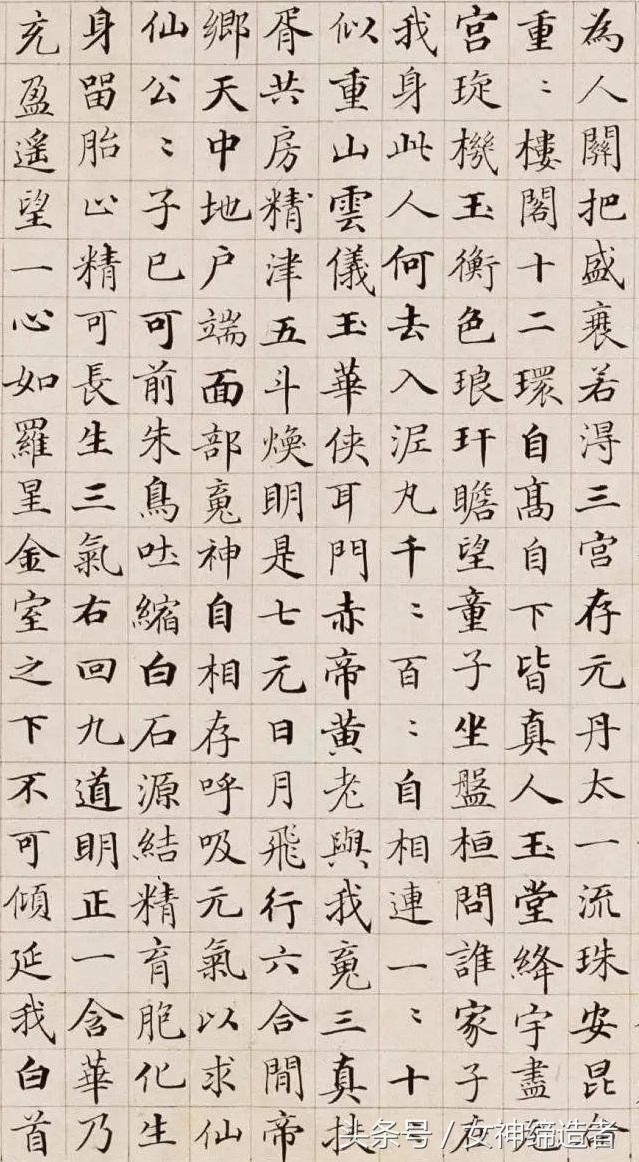 為人關把盛衰若淂三宮存元丹太一流珠安昆侖
重〻樓閣十二環自髙自下皆真人玉堂絳宇盡
宮琁機玉衡色琅玕瞻望童子坐盤桓問誰家子在
我身此人何去入泥丸千〻百〻自相連一〻十〻
似重山雲儀玉華俠耳門赤帝黃老與我䰟三真扶
胥共房精津五斗煥明是七元日月飛行六合間帝
鄉天中地户端面部䰟神自相存呼吸元氣以求仙
仙公〻子已可前朱鳥吐縮白石源結精育胞化生
身留胎止精可長生三氣右回九道明正一含華乃
充盈遥望一心如羅星金室之下不可傾延我白首
头条号 / 女神缔造者